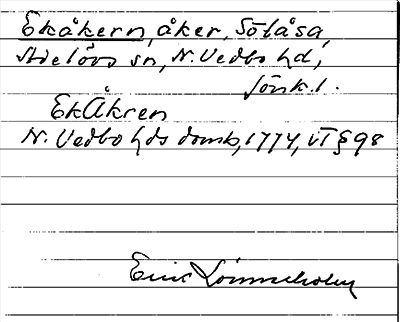 Ekåkern, åker, Sötåsa,
Adelövs sn, N. Vedbo hd,
Jönk. l.
EkÅkren
N. Vedbo hds domb, 1774, vT § 98
Eric Lönnerholm